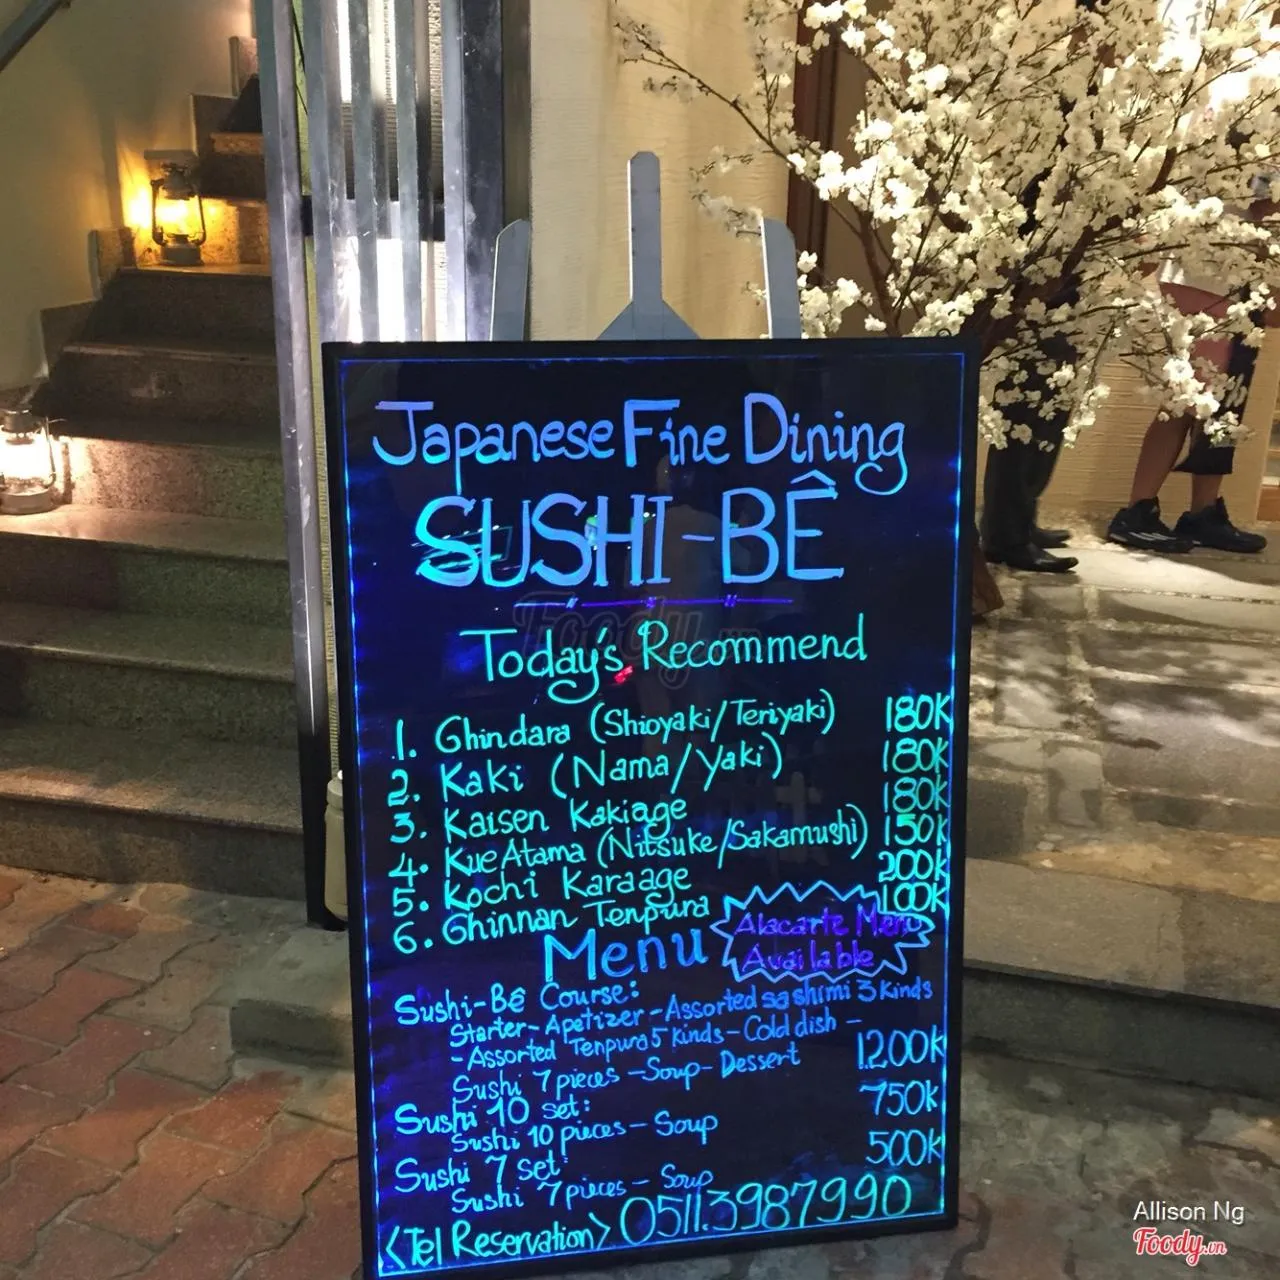 Japanese Fine Dining
SUSHI-BÊ
Foody.vn
Today's Recommend
1. Ghindara (Shioyaki/Teriyaki) 180K
2. Kaki (Nama/Yaki) 180K
3. Kaisen Kakiage 180K
4. Kue Atama (Nitsuke/Sakamushi) 150K
5. Kochi Karaage 200K
6. Ghinnan Tenpura 100K
Menu
Alacarte Menu
Available
Sushi-Bê Course:
Starter-Apetizer-Assorted sashimi 3 Kinds
-Assorted Tenpura 5 Kinds-Cold dish-
Sushi 7 pieces-Soup-Dessert 1.200K
Sushi 10 set: 750K
Sushi 10 pieces-Soup
Sushi 7 set: 500K
Sushi 7 pieces-Soup
<Tel Reservation> 0511.3987990
Allison Ng
Foody.vn